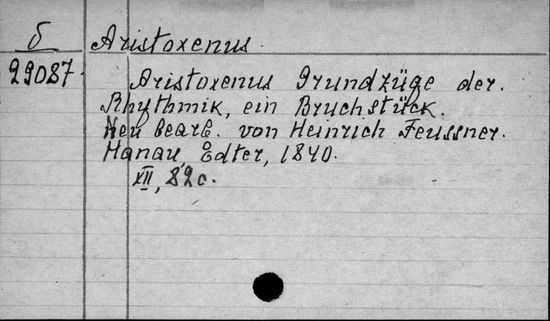 б Aristoxenus.
29087. Aristoxenus Grundzüge der.
Rhythmik, ein Bruchstück.
Neu bearb. von Heinrich Feussner.
Hanau, Edler, 1840.
XII, 82 c.